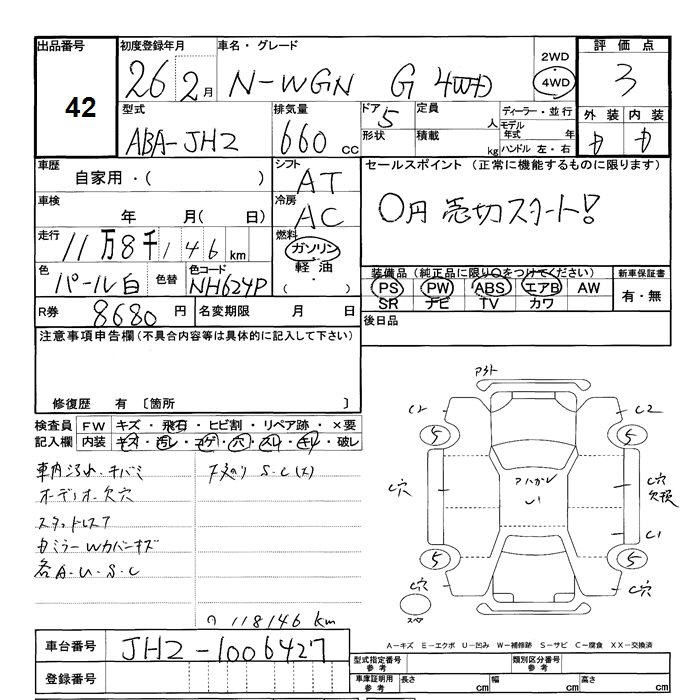 出品番号 初度登録年月 車名・グレード 2WD 評価点
42 26 2月 N-WGN G 4WD 4WD 3
型式 排気量 ドア 定員 ディーラー・並行 外装 内装
ABA-JH2 660cc 5 人 モデル年式 年
形状 積載 kg ハンドル 左・右
車歴 シフト セールスポイント (正常に機能するものに限ります)
自家用・( ) AT 0円 売切スタート!
車検 冷房
年 月( 日) AC
走行 燃料
11万8千146km ガソリン
色 色替 色コード 軽油
パール白 NH624P ( ・ )
装備品(純正品に限り○をつけてください) 新車保証書
PS PW ABS エアB AW 有・無
SR ナビ TV カワ
R券 8680円 名変期限 月 日 後日品
注意事項申告欄(不具合内容等は具体的に記入して下さい)
修復歴 有 〔箇所 〕
検査員 FW キズ・飛石・ヒビ割・リペア跡・×要
記入欄 内装 キズ・汚レ・コゲ・穴・スレ・キレ・破レ
車内汚れ・キバミ
オーディオ欠穴
スタッドレス7
各A・U・S・C
118146 km
C2 C2
5 5
C穴 C穴
欠損
C1
5 5
C穴 C穴
スペア
A-キズ E-エクボ U-凹み W-補修跡 S-サビ C-腐食 XX-交換済
車台番号 JH2-1006427
登録番号
型式指定番号 参考 類別区分番号 参考
車庫証明用 参考 長さ cm 幅 cm 高さ cm